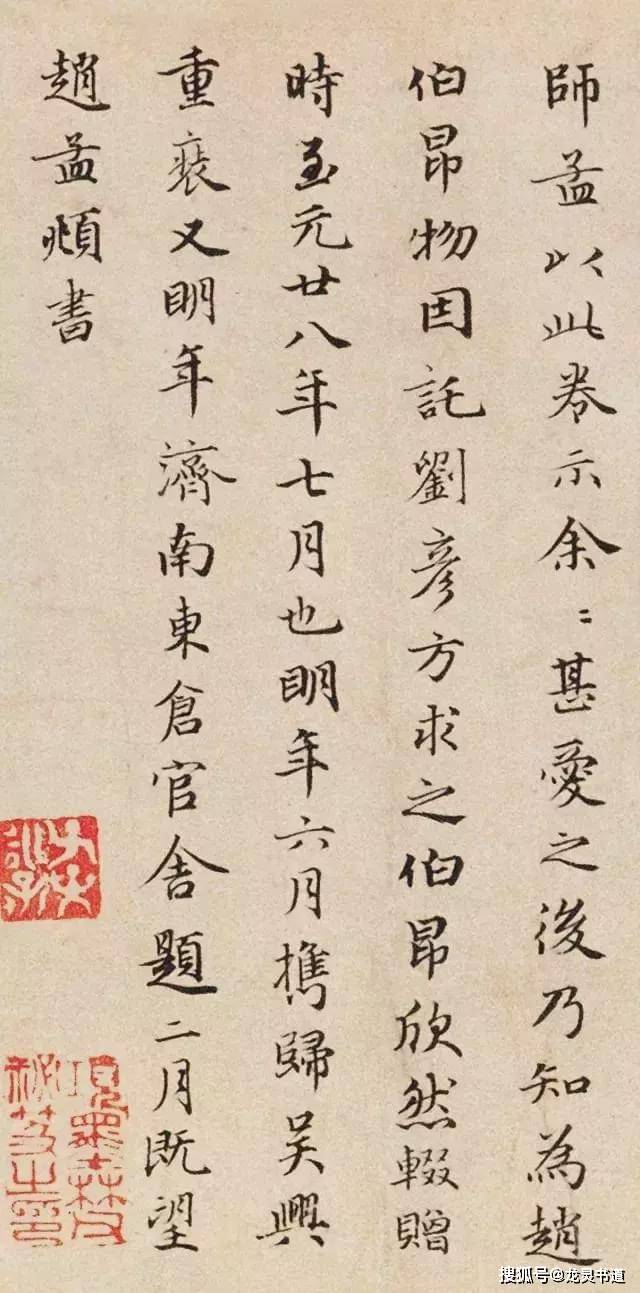 師孟以此卷示余〻甚愛之後乃知為趙
伯昂物因託劉彥方求之伯昂欣然輟贈
時至元廿八年七月也明年六月携歸吴興
重裝又明年濟南東倉官舍題二月既望
趙孟頫書
項墨林父
祕笈之印
搜狐号@龙灵书道